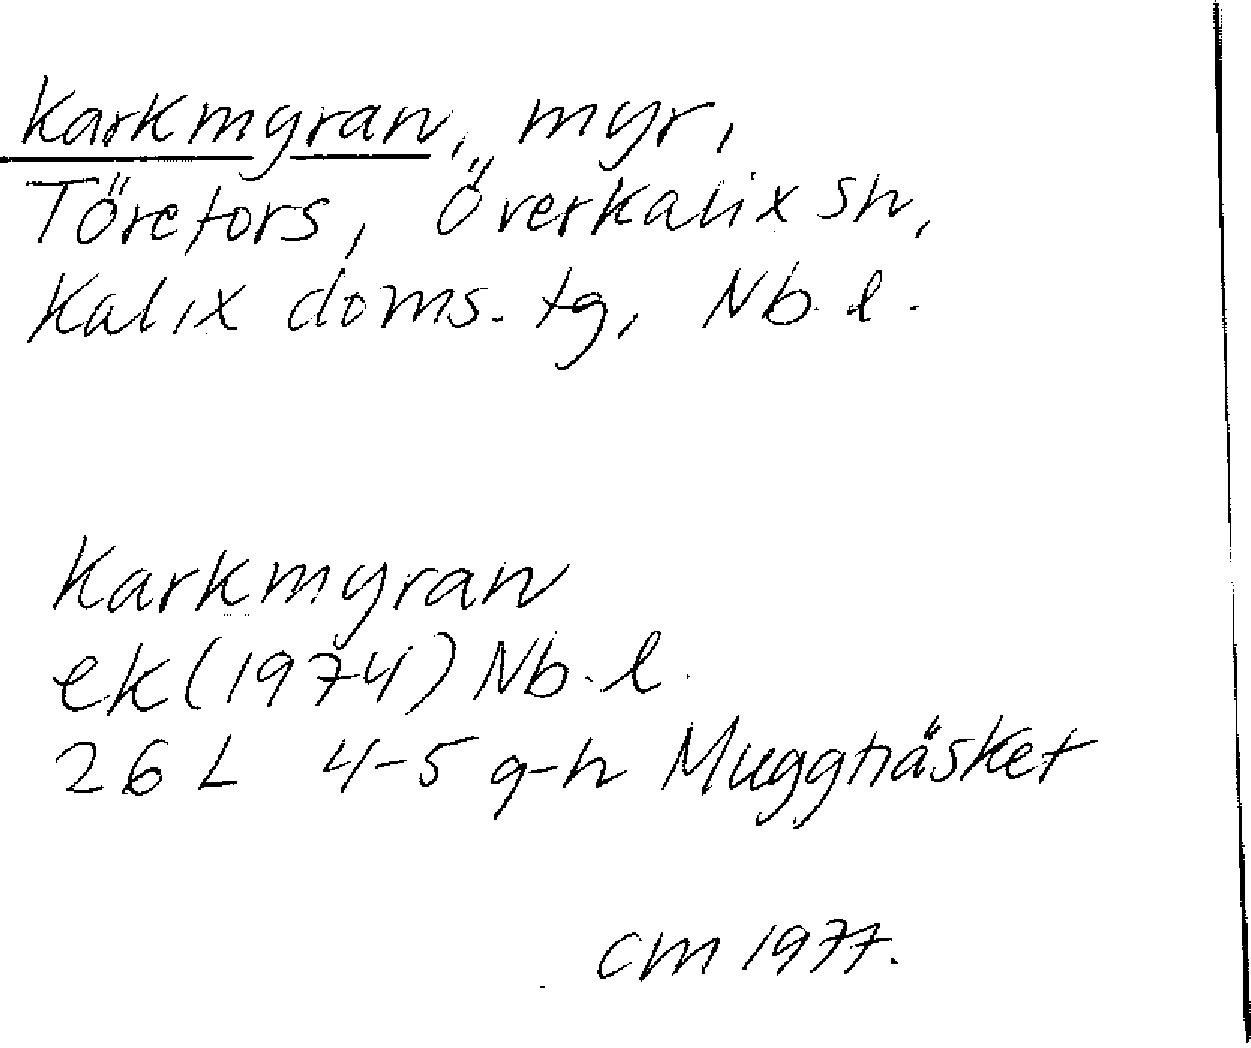 Karkmyran, myr,
Törefors, Överkalix sn,
Kalix doms. tg, Nb. l.
Karkmyran
ek (1974) Nb. l.
26 L 4-5 g-h Muggträsket
CM 1977.